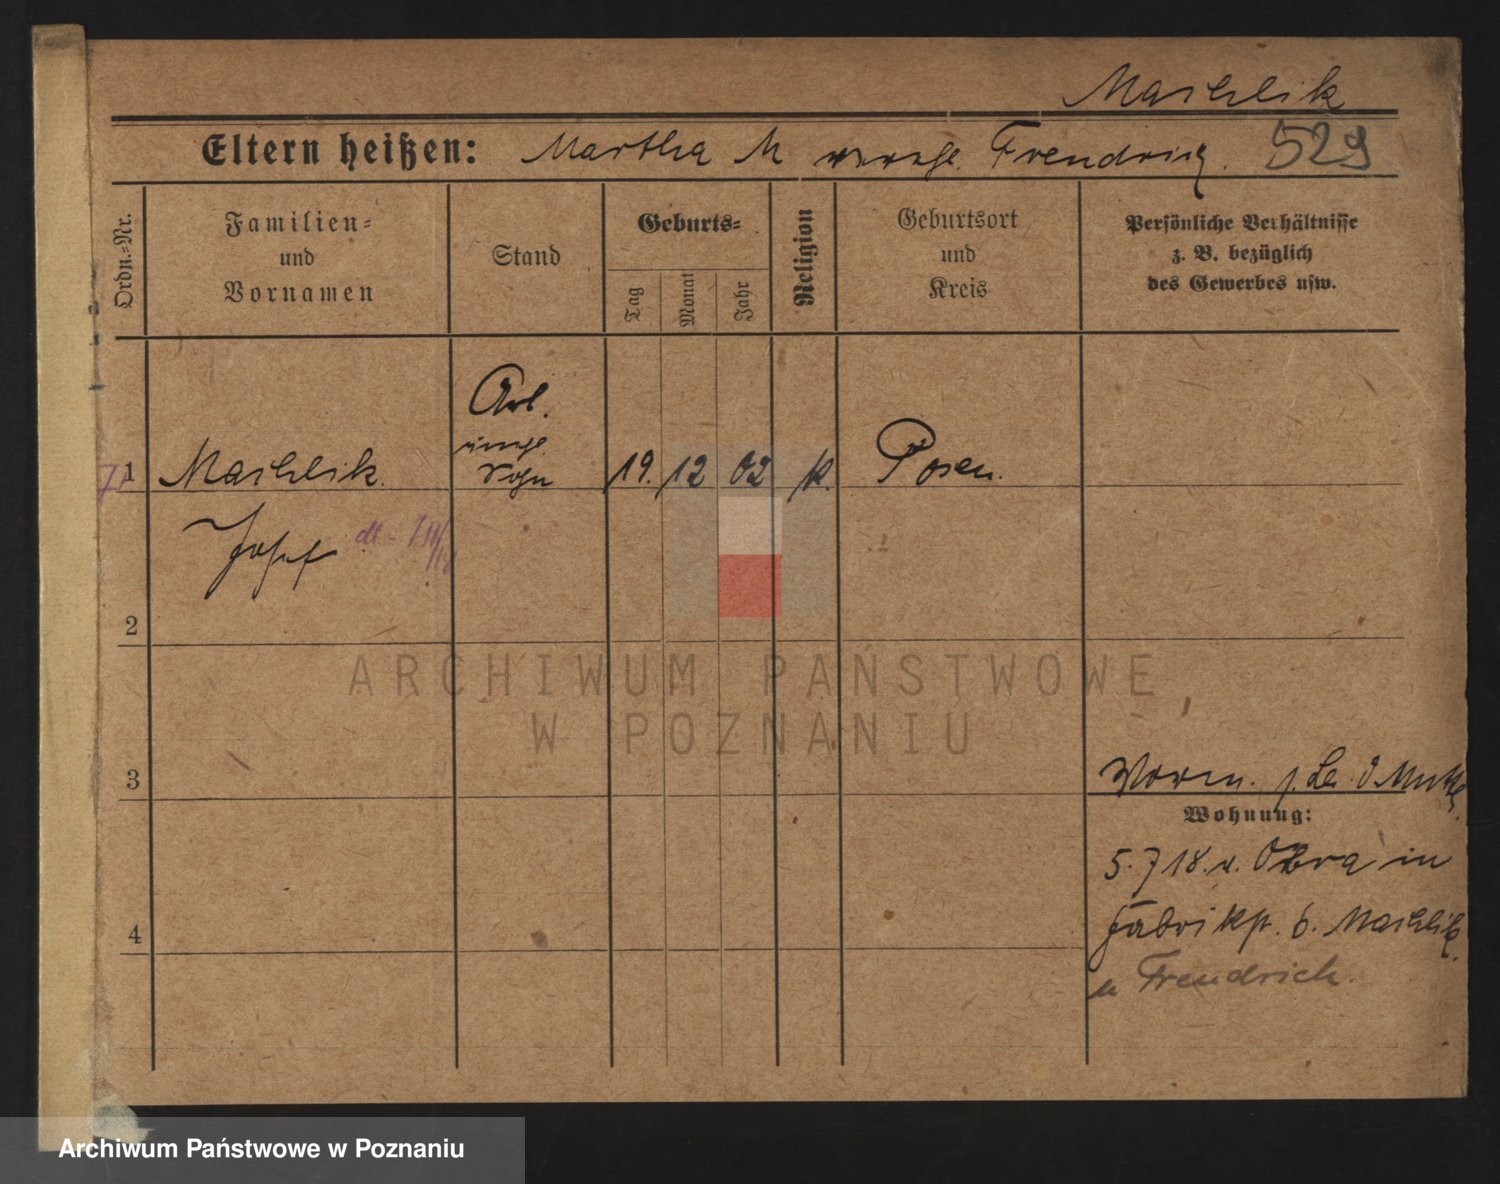 Machlik
Eltern heißen: Martha M verehe. Frendrich. 529
Ordn.-Nr.
Familien-
und
Vornamen
Stand
Geburts-
Tag
Monat
Jahr
Religion
Geburtsort
und
Kreis
Persönliche Verhältnisse
z. B. bezüglich
des Gewerbes usw.
Arb.
unehe.
1 Machlik Sohn 19. 12 02 k. Posen.
Josef
2
3
Vorm.
Wohnung:
5.7 18. v. Obra in
Fabrikst. b. Machlik
4
Frendrich.
ARCHIWUM PAŃSTWOWE
W POZNANIU
Archiwum Państwowe w Poznaniu